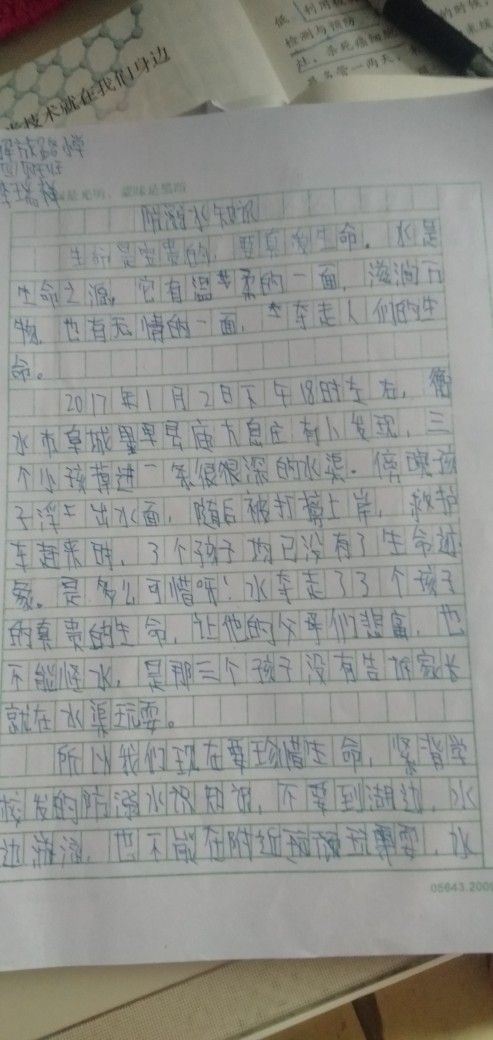 技术就在我们身边
防溺水知识
生命是宝贵的，要真爱生命。水是
生命之源，它有温柔的一面，滋润万
物，也有无情的一面，夺走人们的生
命。
2017年1月2日下午18时左右，衡
水市阜城县 大息庄有人发现，三
个小孩掉进一条很很深的水渠。傍晚孩
子浮出水面，随后被打捞上岸，救护
车赶来时，3个孩子均已没有了生命迹
象。是多么可惜呀！水夺走了3个孩子
的真贵的生命，让他的父母们悲痛，也
不能怪水，是那三个孩子没有告诉家长
就在水渠玩耍。
所以我们现在要珍惜生命，紧背学
校发的防溺水知识，不要到湖边，水
边 ，也不能在附近玩耍，水
05643.200